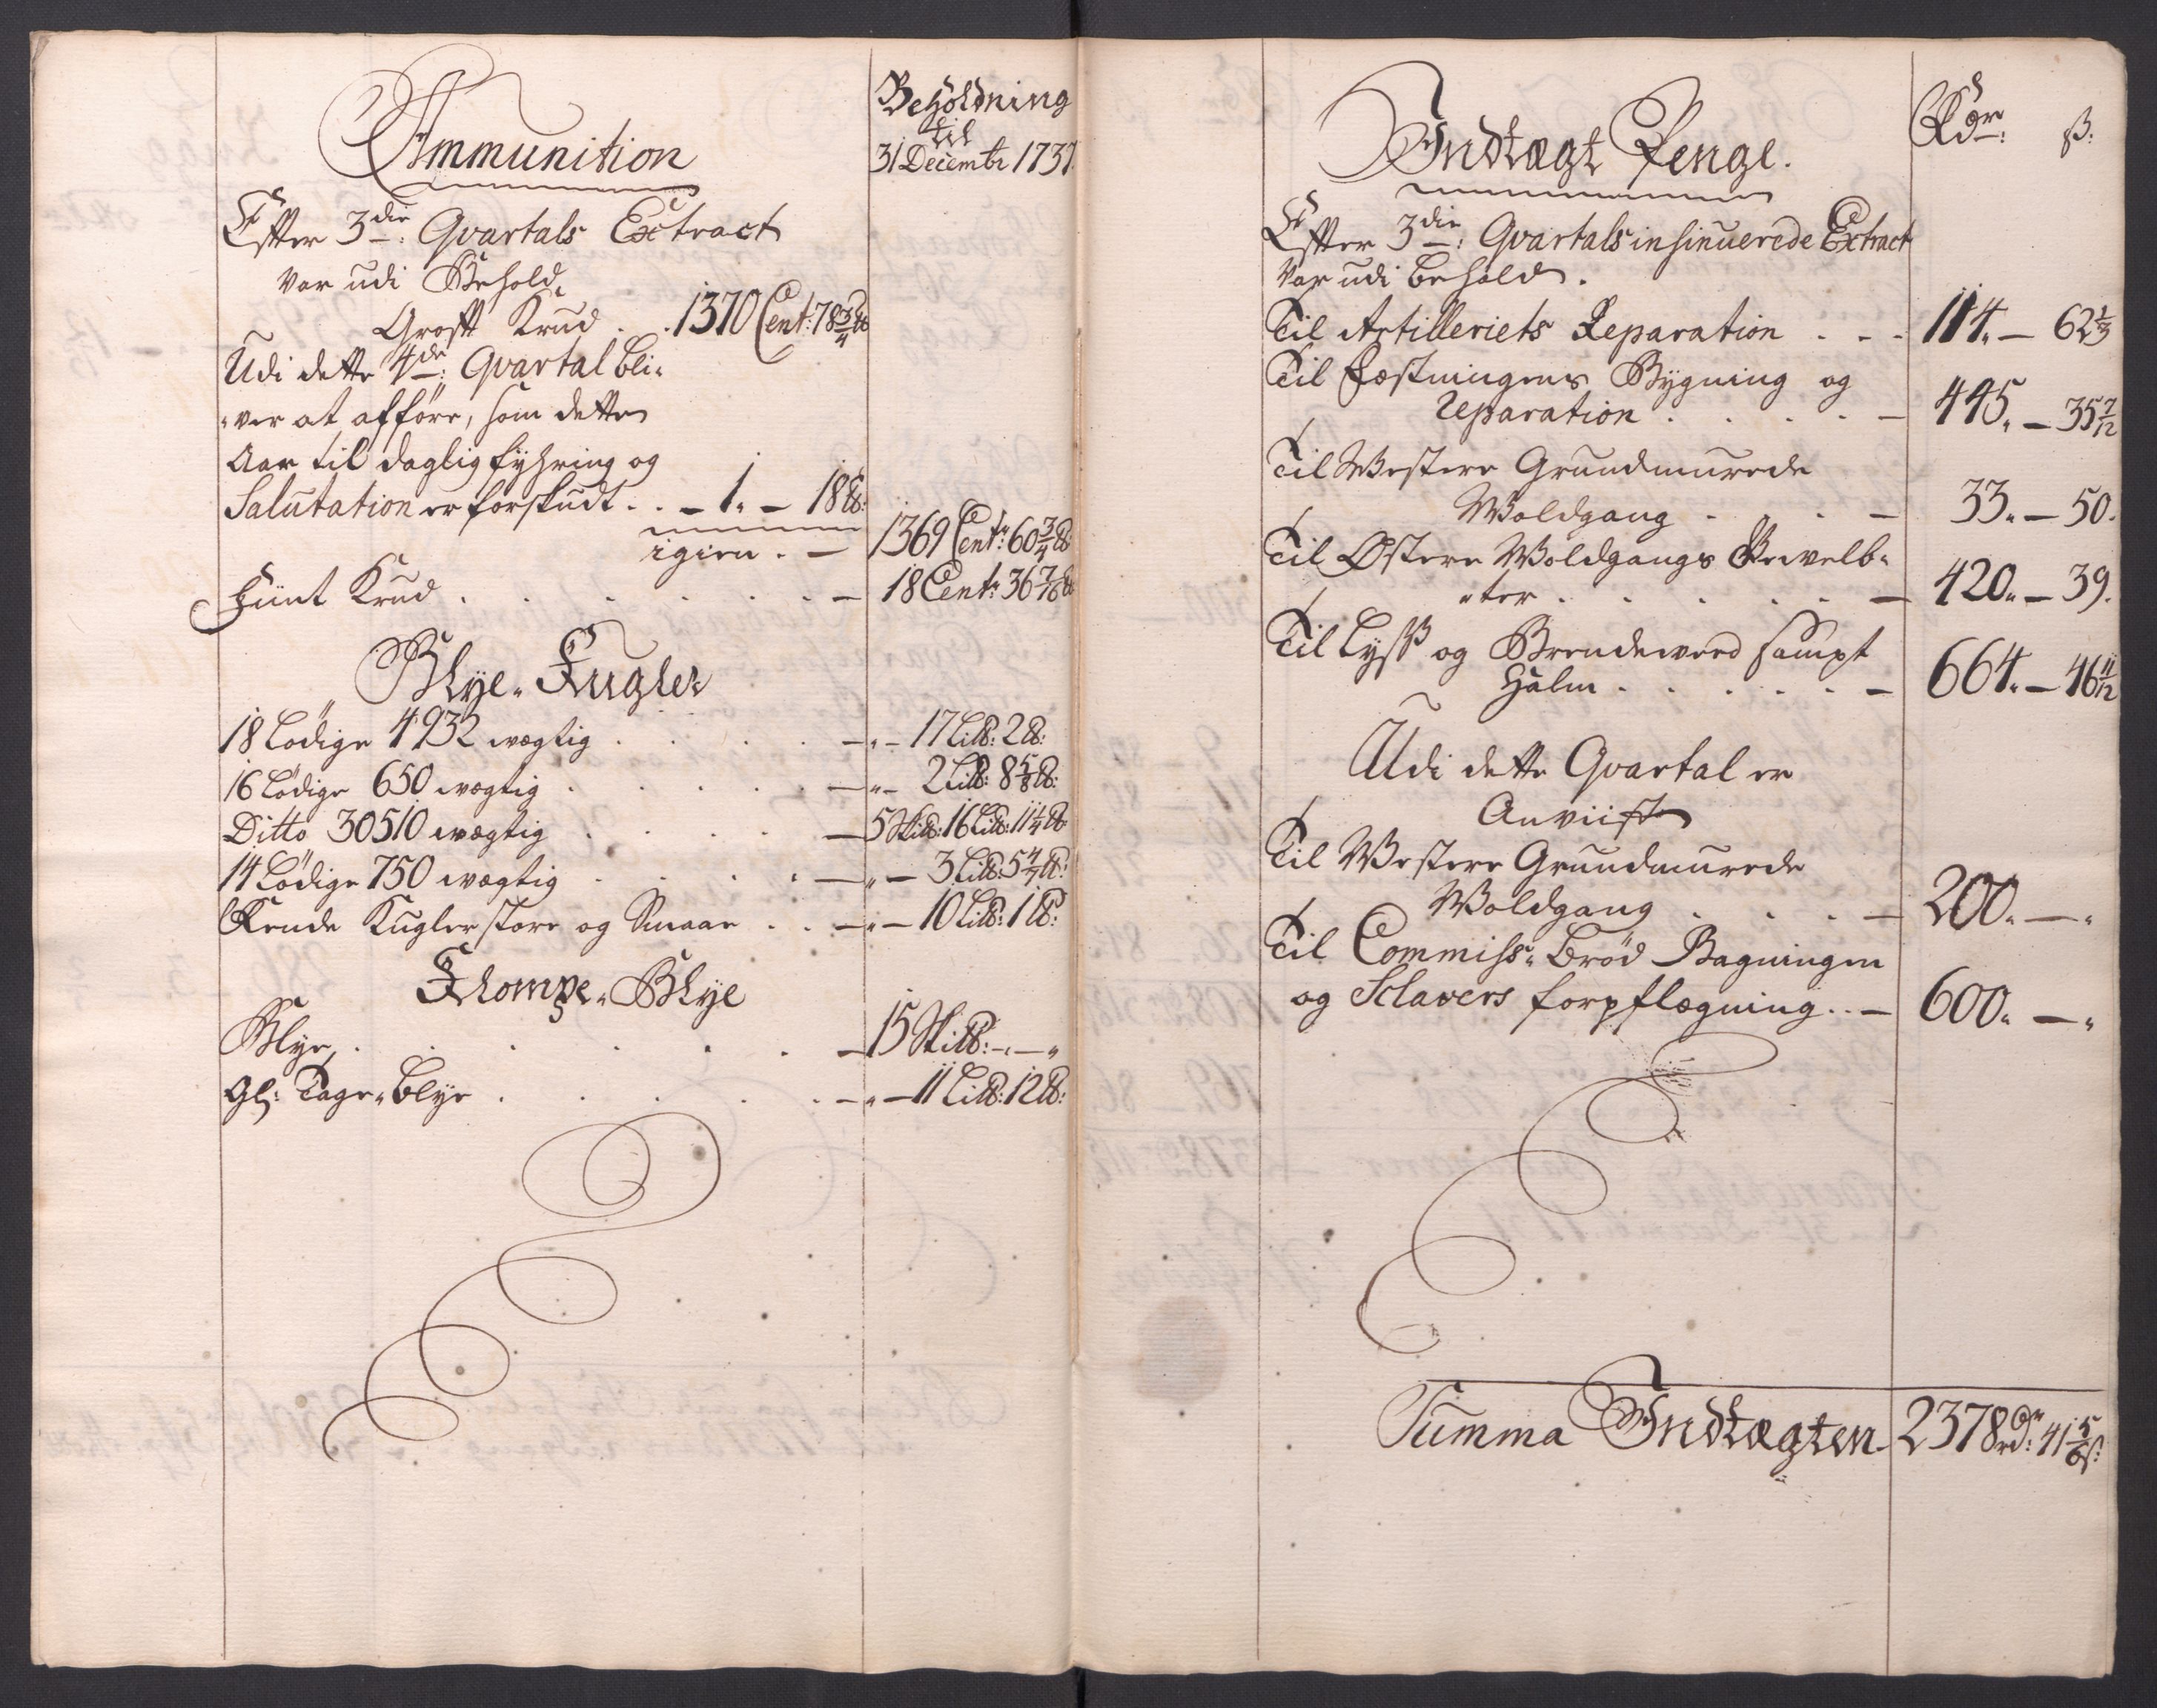 Ammunition
Beholdning
til
31 Decembr 1737
Efter 3die: Qvartals Extract
var udi Behold,
Groft Krud . . 1370 Cent: 78 3/4 ℔
Udi dette 4de: Qvartal bli-
-ver at afföre, som dette
Aar til daglig fyhring og
Salutation er forskudt . . – 1. – 18 ℔:
igien . – 1369 Centr 60 3/4 ℔
Fiint Krud . . . . . . – 18 Centr: 36 7/8 ℔
Blye-Kugler
18 Lödige 4932 wegtig . . . . – „ – 17 Li℔: 2 ℔:
16 Lödige 650 wegtig . . . . – „ – 2 Li℔: 8 5/8 ℔:
Ditto 30510 wegtig . . . . – 5 Ski℔: 16 Li℔: 11 1/4 ℔:
14 Lödige 750 wegtig . . . . – „ – 3 Li℔: 5 4/7 ℔:
Rende Kugler store og Smaae . . – „ – 10 Li℔: 1 ℔:
Klompe-Blye
Blye . . . . . – 15 Ski℔: – „ – „
Gl: Tage-Blye . . . . . – „ – 11 Li℔: 12 ℔:
Indtægt Penge.
Rdr: ß:
Efter 3die: Qvartals insinuerede Extract
var udi behold.
Til Artilleriets Reparation . . . 114. – 62 1/3
Til Fæstningens Bygning og
reparation . . . . – 445. – 35 7/12
Til Westere Grundmurede
Woldgang . . . – 33. – 50.
Til Østere Woldgangs Gewelb-
-ter . . . . . – 420. – 39.
Til Lyss og Brendeveed sampt
Halm . . . . . – 664. – 46 11/12
Udi dette Qvartal er
Anviist
Til Westere Grundmurede
Woldgang . . . – 200. – „
Til Commiss: Bröd Bagningen
og Sclavers forpflegning . . – 600. – „
Summa Indtægten 2378 rdr: 41 5/6 ß: